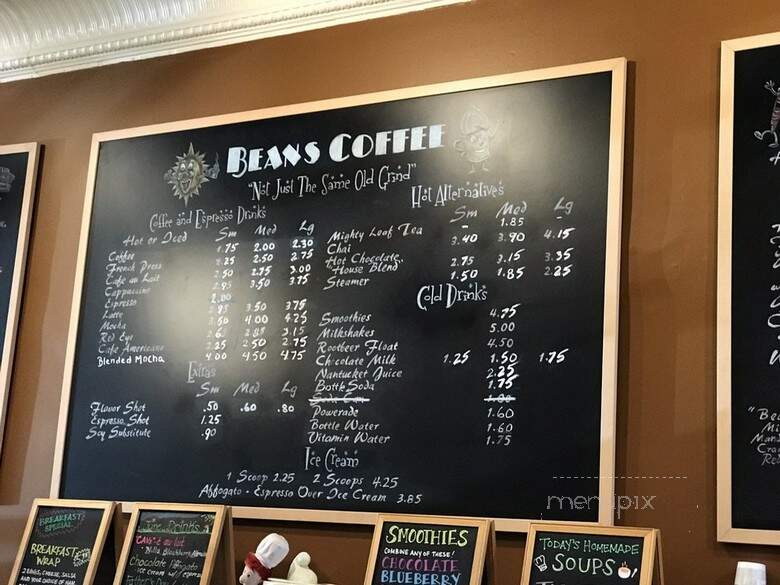 BEANS COFFEE
"Not Just The Same Old Grind"
Coffee and Espresso Drinks
Hot or Iced Sm Med Lg
Coffee 1.75 2.00 2.30
French Press 2.25 2.50 2.75
Cafe au Lait 2.50 2.75 3.00
Cappuccino 2.95 3.50 3.75
Espresso 2.00
Latte 2.95 3.50 3.75
Mocha 3.50 4.00 4.25
Red Eye 2.85 3.15
Cafe Americano 2.25 2.50 2.75
Blended Mocha 4.00 4.50 4.75
Extras
Sm Med Lg
Flavor Shot .50 .60 .80
Espresso Shot 1.25
Soy Substitute .90
Hot Alternatives
Sm Med Lg
Mighty Leaf Tea - 1.85 -
Chai 3.40 3.90 4.15
Hot Chocolate,
House Blend 2.75 3.15 3.35
Steamer 1.50 1.85 2.25
Cold Drinks
Smoothies 4.75
Milkshakes 5.00
Rootbeer Float 4.50
Chocolate Milk 1.25 1.50 1.75
Nantucket Juice 2.25
Bottle Soda 1.75
Soda Can 1.00
Powerade 1.60
Bottle Water 1.60
Vitamin Water 1.75
Ice Cream
1 Scoop 2.25 2 Scoops 4.25
Affogato - Espresso Over Ice Cream 3.85
menupix
BREAKFAST
SPECIAL
BREAKFAST
WRAP
2 EGGS, CHEESE, SALSA
AND YOUR CHOICE OF HAM
Drinks
au lait
Chocolate Affogato
ice cream w/
SMOOTHIES
COMBINE ANY OF THESE!
CHOCOLATE
BLUEBERRY
TODAY'S HOMEMADE
SOUPS